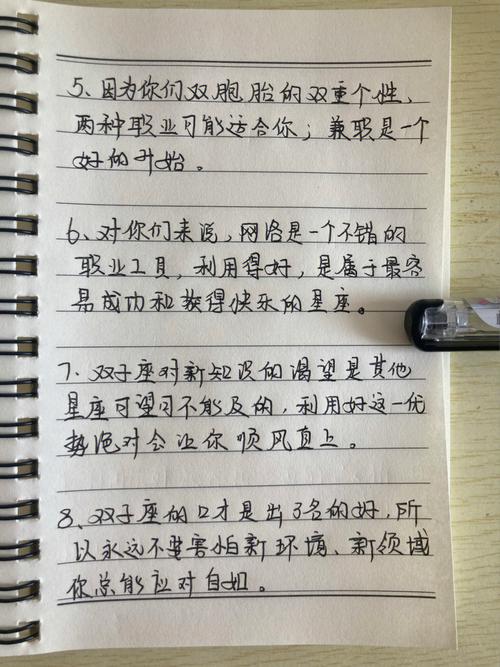 5、因为你们双胞胎的双重个性，
两种职业可能适合你；兼职是一个
好的开始。
6、对你们来说，网络是一个不错的
职业工具，利用得好，是属于最容
易成功和获得快乐的星座。
7、双子座对新知识的渴望是其他
星座可望可不能及的，利用好这一优
势绝对会让你顺风直上。
8、双子座的口才是出了名的好，所
以永远不要害怕新环境、新领域
你总能应对自如。